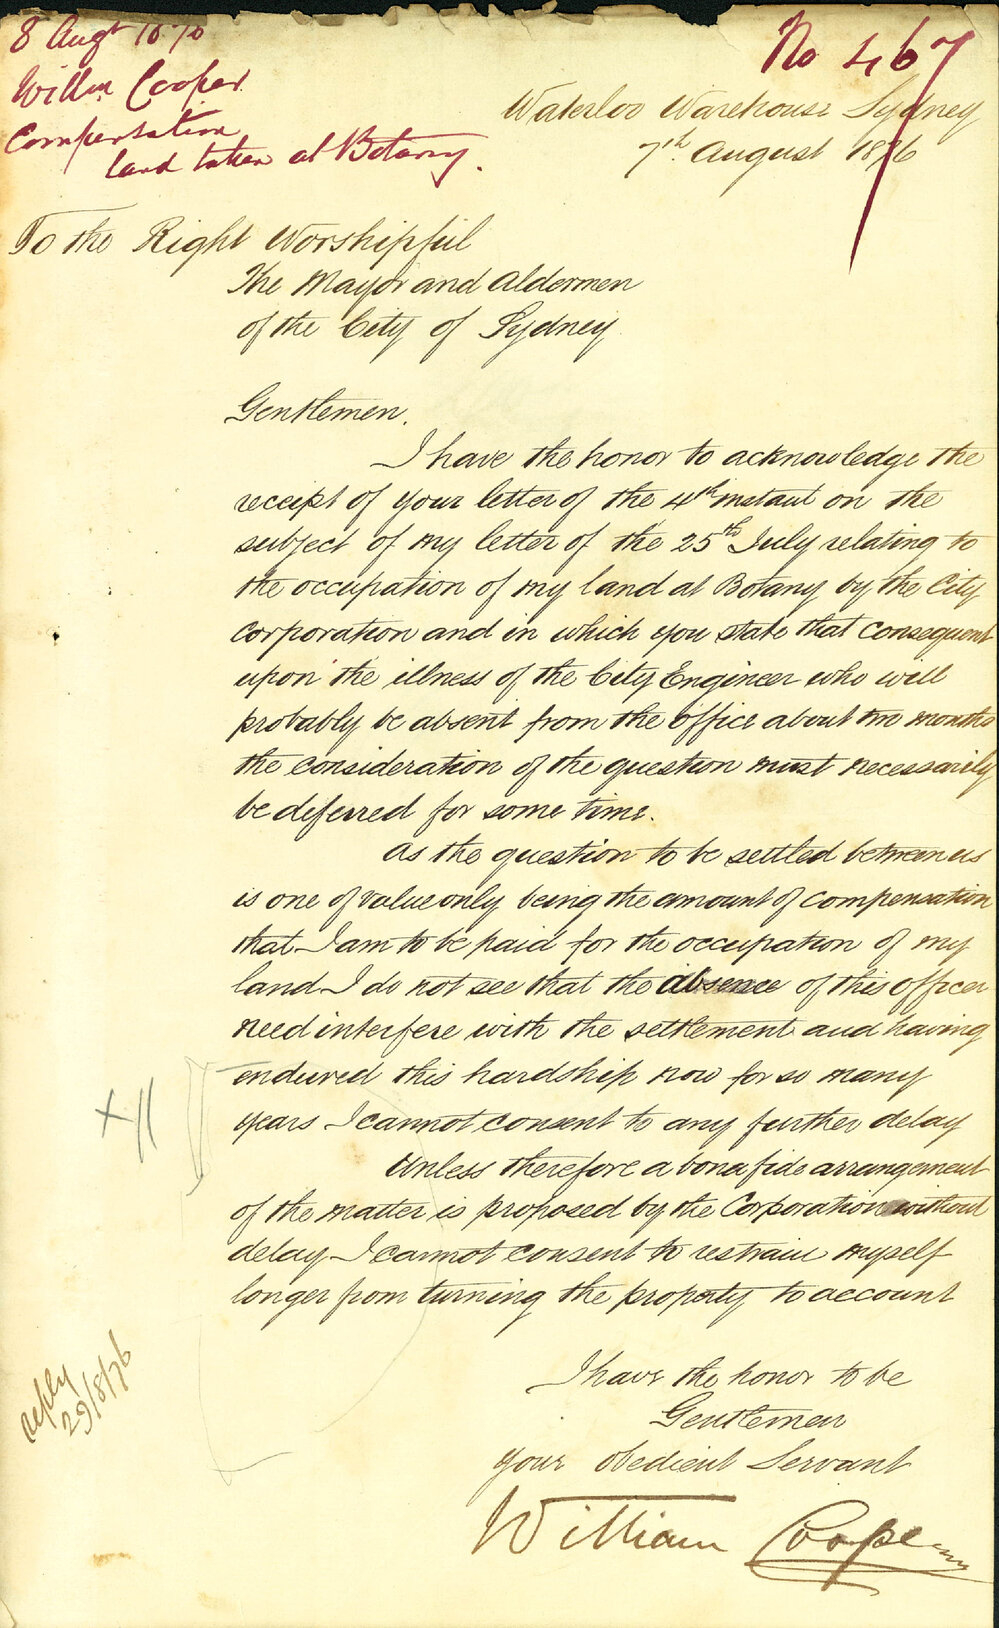 8 Augt 1876
No 467
Willm Cooper
Compensation
land taken at Botany.
Waterloo Warehouse Sydney
7th August 1876
To the Right Worshipful
The Mayor and Aldermen
of the City of Sydney
Gentlemen.
I have the honor to acknowledge the
receipt of your letter of the 4th instant on the
subject of my letter of the 25th July relating to
the occupation of my land at Botany by the City
Corporation and in which you state that consequent
upon the illness of the City Engineer who will
probably be absent from the office about two months
the consideration of the question must necessarily
be deferred for some time.
As the question to be settled between us
is one of value only being the amount of compensation
that I am to be paid for the occupation of my
land I do not see that the absence of this officer
need interfere with the settlement and having
endured this hardship now for so many
years I cannot consent to any further delay
Unless therefore a bona fide arrangement
of the matter is proposed by the Corporation without
delay I cannot consent to restrain myself
longer from turning the property to account
I have the honor to be
Gentlemen
Your obedient Servant
William Cooper
reply
29/8/76